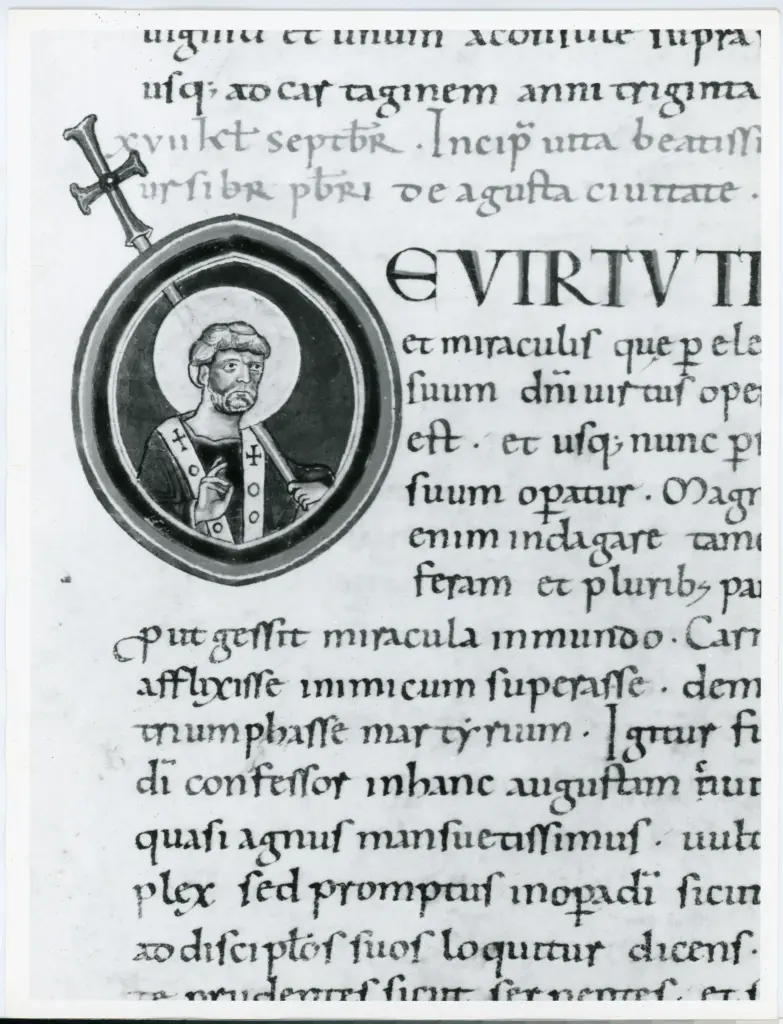 uiginti et unum aconsule supra
usq; ad car taginem anni triginta
xvii kƚ septƀr . Incip̄ uita beatissi
ursi ƀr pƀri de agusta ciuitate .
E VIRTVTI
et miraculis que p̲ ele
suum dn̄i uirtus ope
est . et usq; nunc p̲
suum op̲atur . Magn
enim indagare tame
feram et plurib; pa
Put gessit miracula inmundo . Carn
afflixisse inimicum superasse . dem
triumphasse martyrium . Igitur fi
di confessor inhanc augustam
quasi agnus mansuetissimus . uult
plex sed promptus inop̲adi sicut
ad discipłos suos loquitur dicens .
te prudentes sicut serpentes . et s